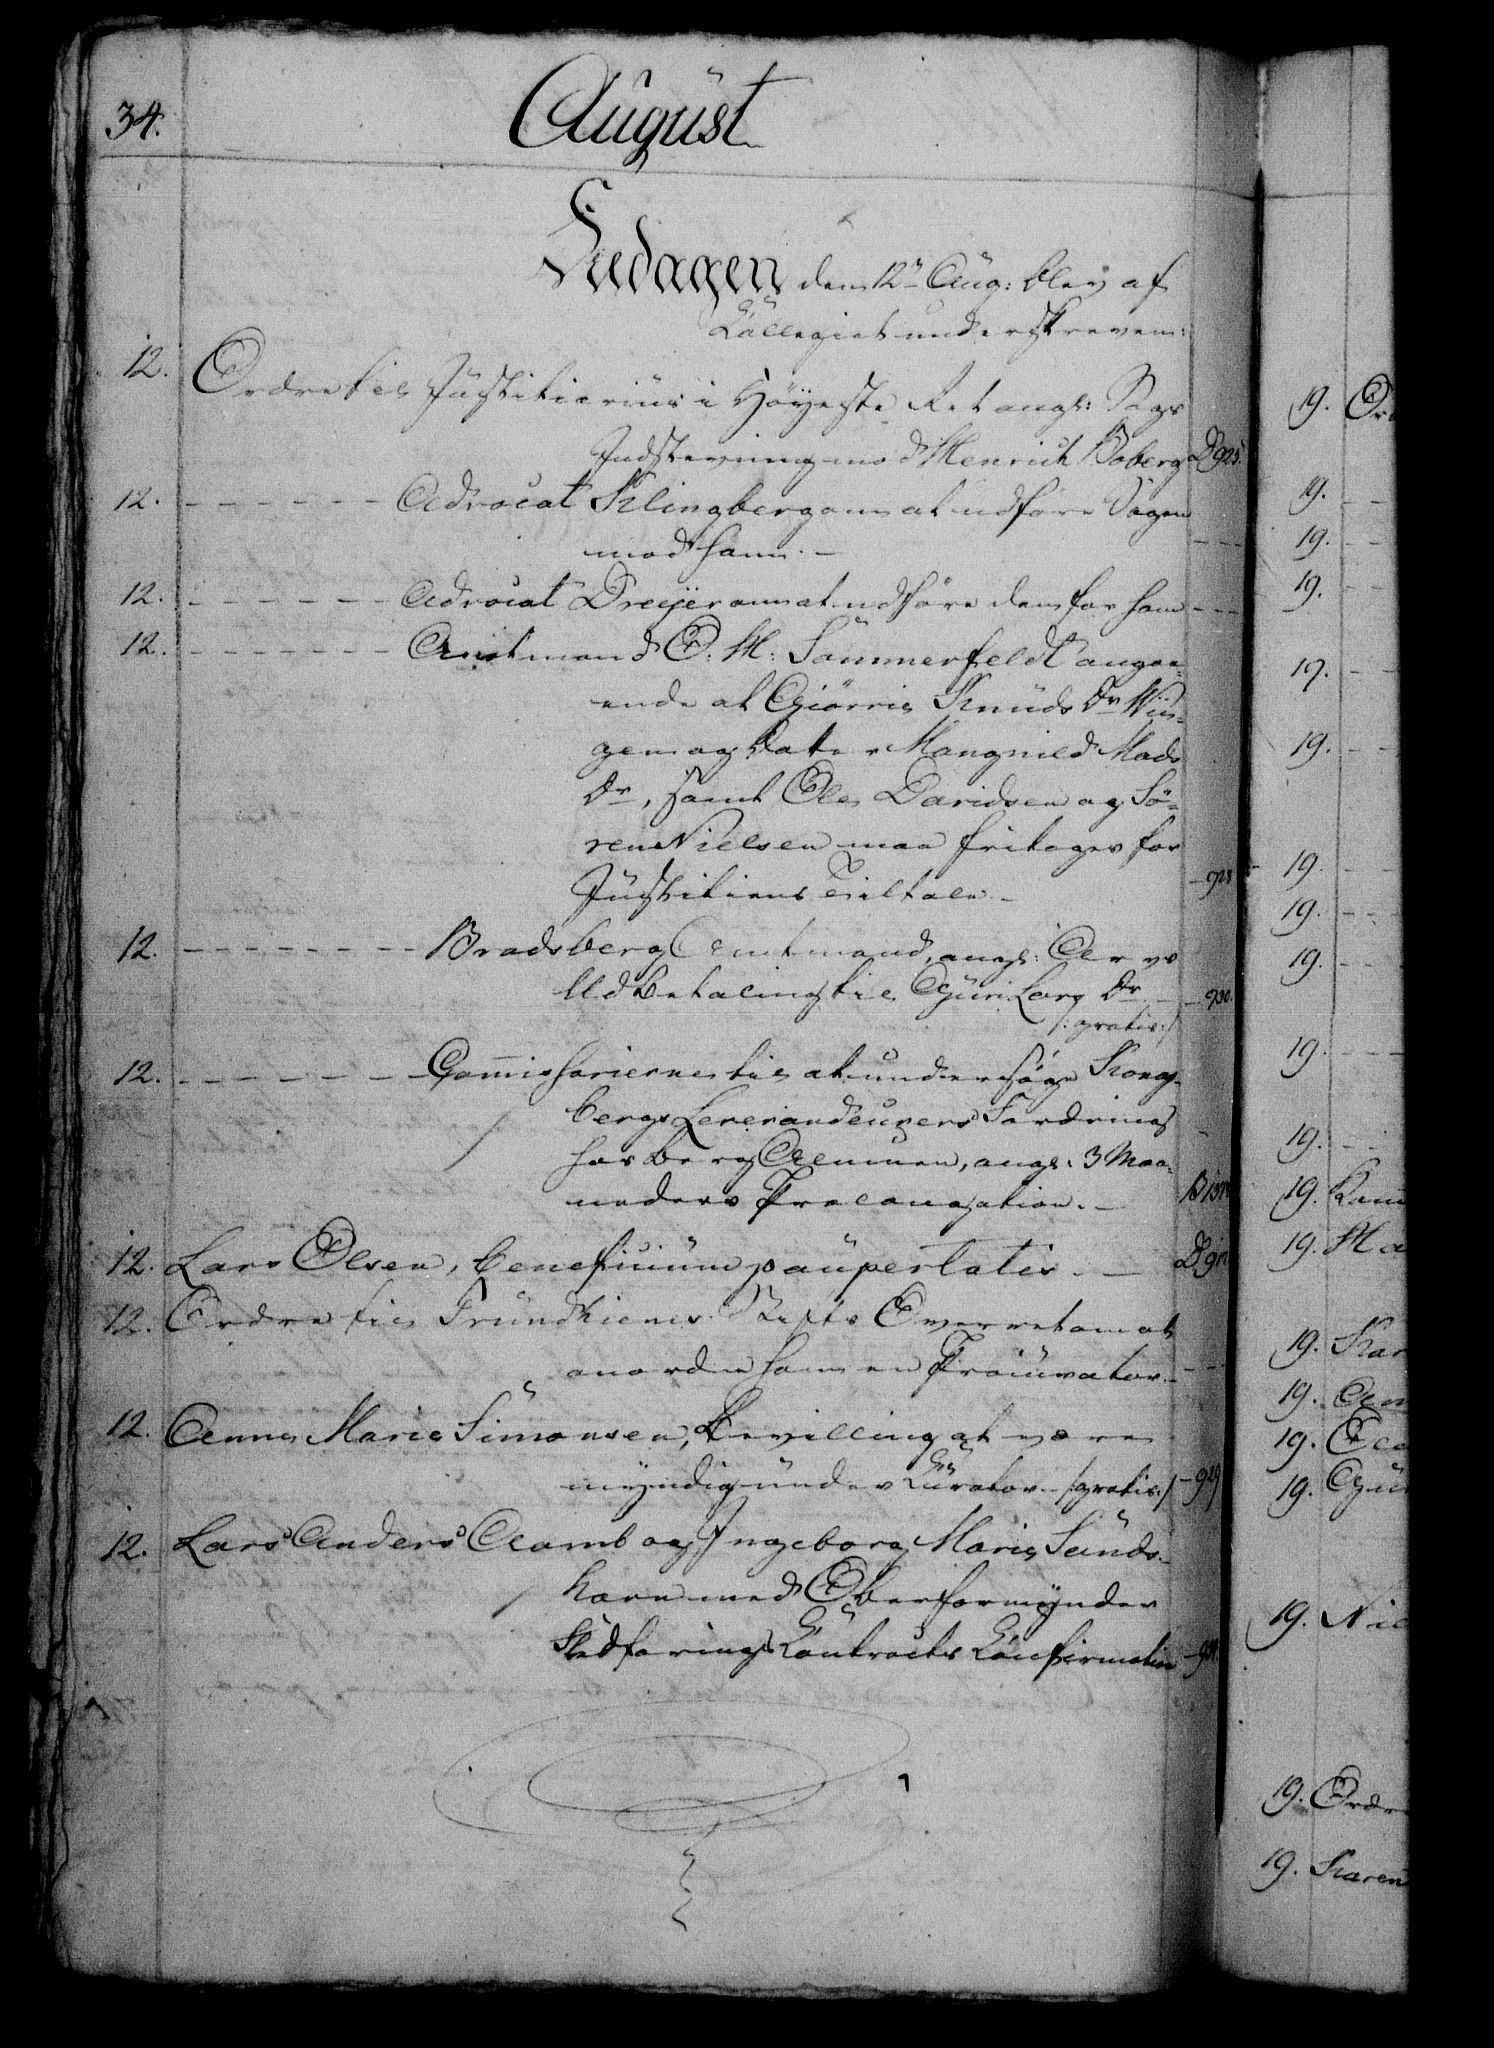 34.
August
Fredagen den 12te Aug: blev af
Collegiet underskreven:
12. Ordre til Justitiarius i Höyeste Ret angl: Sags
Indstevning mod Henrich Boberg D 925.
12. - - - - - - Advocat Klingberg om at udföre Sagen
mod ham. - - - -
12. - - - - - - Advocat Dreyer om at udföre den for ham - - -
12. - - - - - - Amtmand O. H. Sommerfeldt angaa-
ende at Giörris Knuds Dr
gen og Datter Mangnild Mads
Dr, samt Ole Davidsen og Sö-
ren Nielsen maa fritages for
Justitiens Tiltale. - 928
12. - - - - - - - Bradsberg Amtmand, angl: Arvs
Udbetaling til Guri Lars Dr. - 930.
/: gratis :/
12. - - - - - - - Commissarierne til at undersöge Kongs-
bergs Leverandeurers Fordring
hos Berg Casernen, angl: 3 Maa-
neders Prolongation. -
12. Lars Olsen, beneficium paupertatis. -
12. Ordre til Trundhiems Stifts Overret om at
anordne ham en Procurator. - - -
12. Anne Marie Simonsen, Bevilling at være
myndig under Curator. /: gratis :/ - 929
12. Lars Anders Aamb og Ingeborg Marie Sunds-
horn med Oberformynder
Contracts Confirmation
19. Or
19. - -
19. - -
19. - -
19. - -
19. - -
19. - -
19. - -
19. - -
19. - -
19. - -
19.
19. Ma
19. Kar
19. Am
19. Ole
19. Gu
19. Nie
19. Ordre
19. Karen